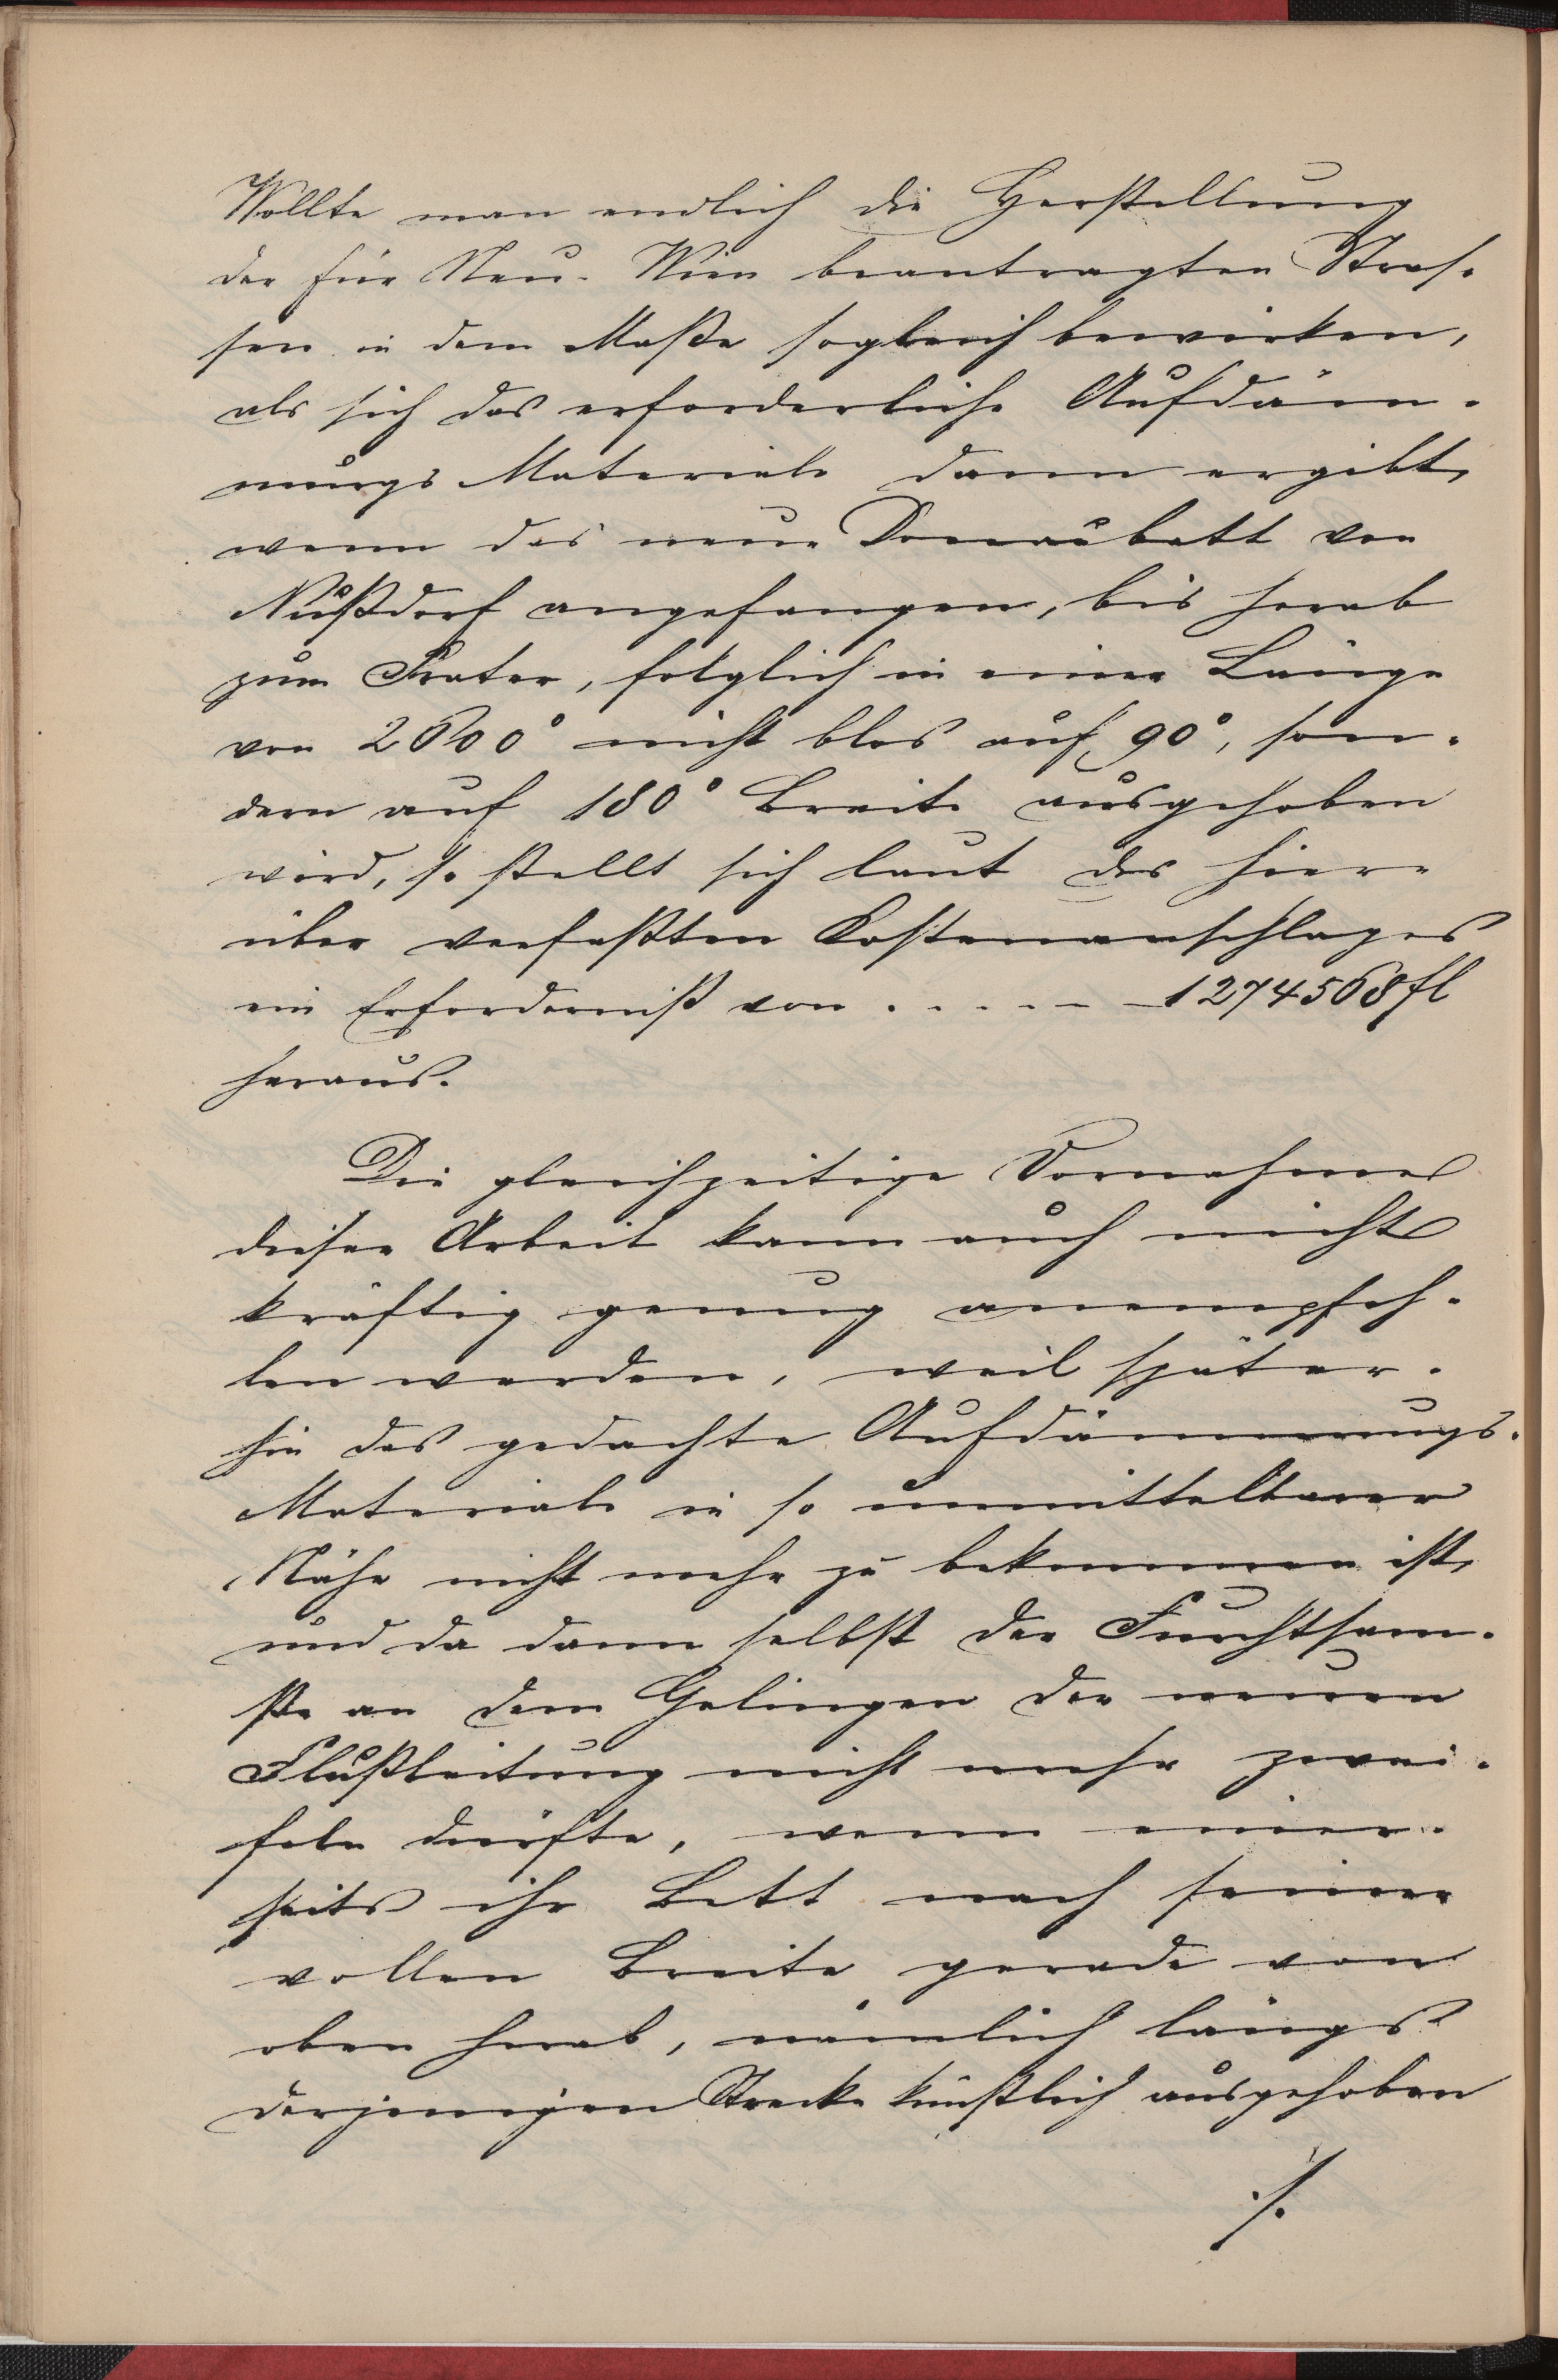 Wollte man endlich die Herstellung
der für Neu-Wien beantragten Stras-
sen in dem Maße sogleich bewirken,
als sich das erforderliche Aufdäm-
mungs Materiale dann ergibt,
wenn das neue Donaubett von
Nußdorf angefangen, bis herab
zum Prater, folglich in einer Länge
von nicht blos auf 90°, son-
dern auf 180° Breite ausgehoben
wird, so stellt sich laut des hier-
über verfaßten Kostenanschlages
ein Erforderniß von . . . . . 1274568 fl
heraus.
Die gleichzeitige Vornahme
dieser Arbeit kann auch nicht
kräftig genug anempfeh-
len werden, weil später-
hin das gedachte Aufdämmungs-
Materiale in so unmittelbarer
Nähe nicht mehr zu bekommen ist,
und da dann selbst der Furchtsam-
ste an dem Gelingen der neuen
Flußleitung nicht mehr zwei-
feln dürfte, wenn einer-
seits ihr Bett nach seiner
vollen Breite gerade von
oben herab, nämlich längs
derjenigen Strecke künstlich ausgehoben
./.